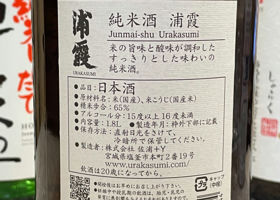 浦霞
URAKASUMI
純米酒 浦霞
Junmai-shu Urakasumi
米の旨味と酸味が調和した
すっきりとした味わいの
純米酒。
●品目:日本酒
●原材料名:米(国産)、米こうじ(国産米)
●精米歩合:65%
●アルコール分:15度以上16度未満
●内容量:1.8L ●製造年月:枠外下部に記載
●保存方法:直射日光をさけて、
冷暗所で保管してください。
●製造者:株式会社 佐浦+Y
宮城県塩釜市本町2番19号
www.urakasumi.com
飲酒は20歳になってから。